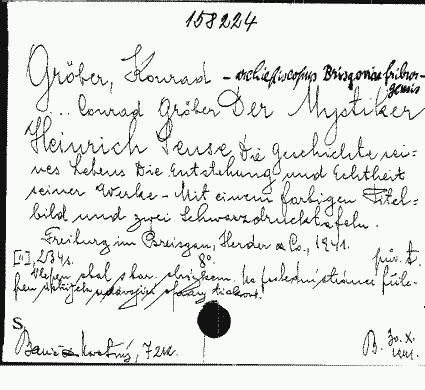 158224
Gröber, Konrad - archiepiscopus Brisgoviae friburgensis
... Conrad Gröber Der Mystiker
Heinrich Seuse Die Geschichte sei=
nes Lebens Die Entstehung und Echtheit
seiner Werke - Mit einem farbigen Titel=
bild und zwei Schwarzdrucktafeln.
Freiburg im Breisgau, Herder & Co., 1941.
[II], 234 s. 8°. pův. b.
Na poslední stránce
S
7 zk.
B. 30. X. 1941.